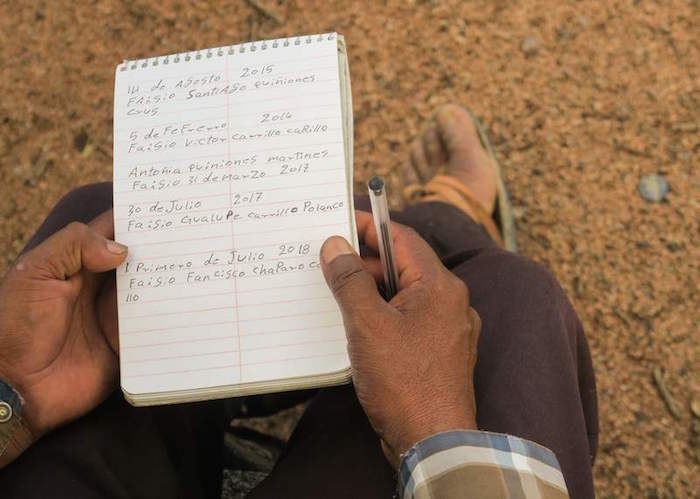 14 de Agosto 2015
FAisio SantiAgo quiñiones
Crus
5 de FeFrerro 2016
Faisio victor carrillo caRillo
Antoñia quiniones martines
Faisio 31 de marzo 2017
30 de Julio 2017
Faisio Gualupe carrillo Polanco
1 Primero de Julio 2018
Faisio Fancisco chaparo Ca
llo